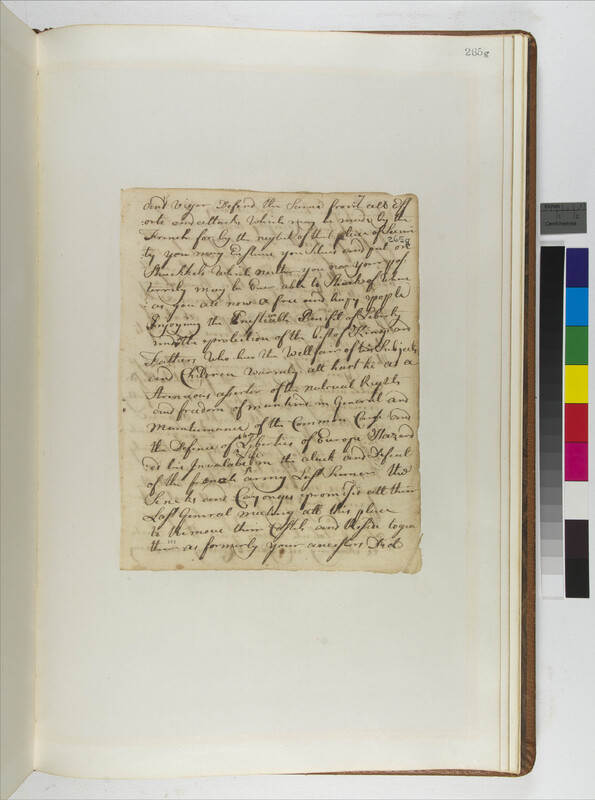 265g
and Viger Defend the Same from all Eff
orts and attacks Which may be made by the
French for by the neglect of that place of Secur
265g
ty you may Enslave your Selves and put on
Shackkels Which neither you nor your pos
territy may be Ever able to Shack of Where
as you are now a free and hapy people
Enjoying the Enestimable Benifit of Liberty
under the protection of the best of Kings and
Fathers Who has the Wellfair of his Subjects
and Children warmly att hart he as a
Strenuous asserter of the natural Rights
and freedom of mankind in General and
Maintainance of the Common Cause and
the Defence of the Liberties of Europe Hazard
ed his Invalable in the attack and Defeat
of the french army Last Sumer the
Senekes and Cayouges promised att their
Last General meeting att this place
to Remove their Castels and Reside togea
ther as formerly your ancestors Did